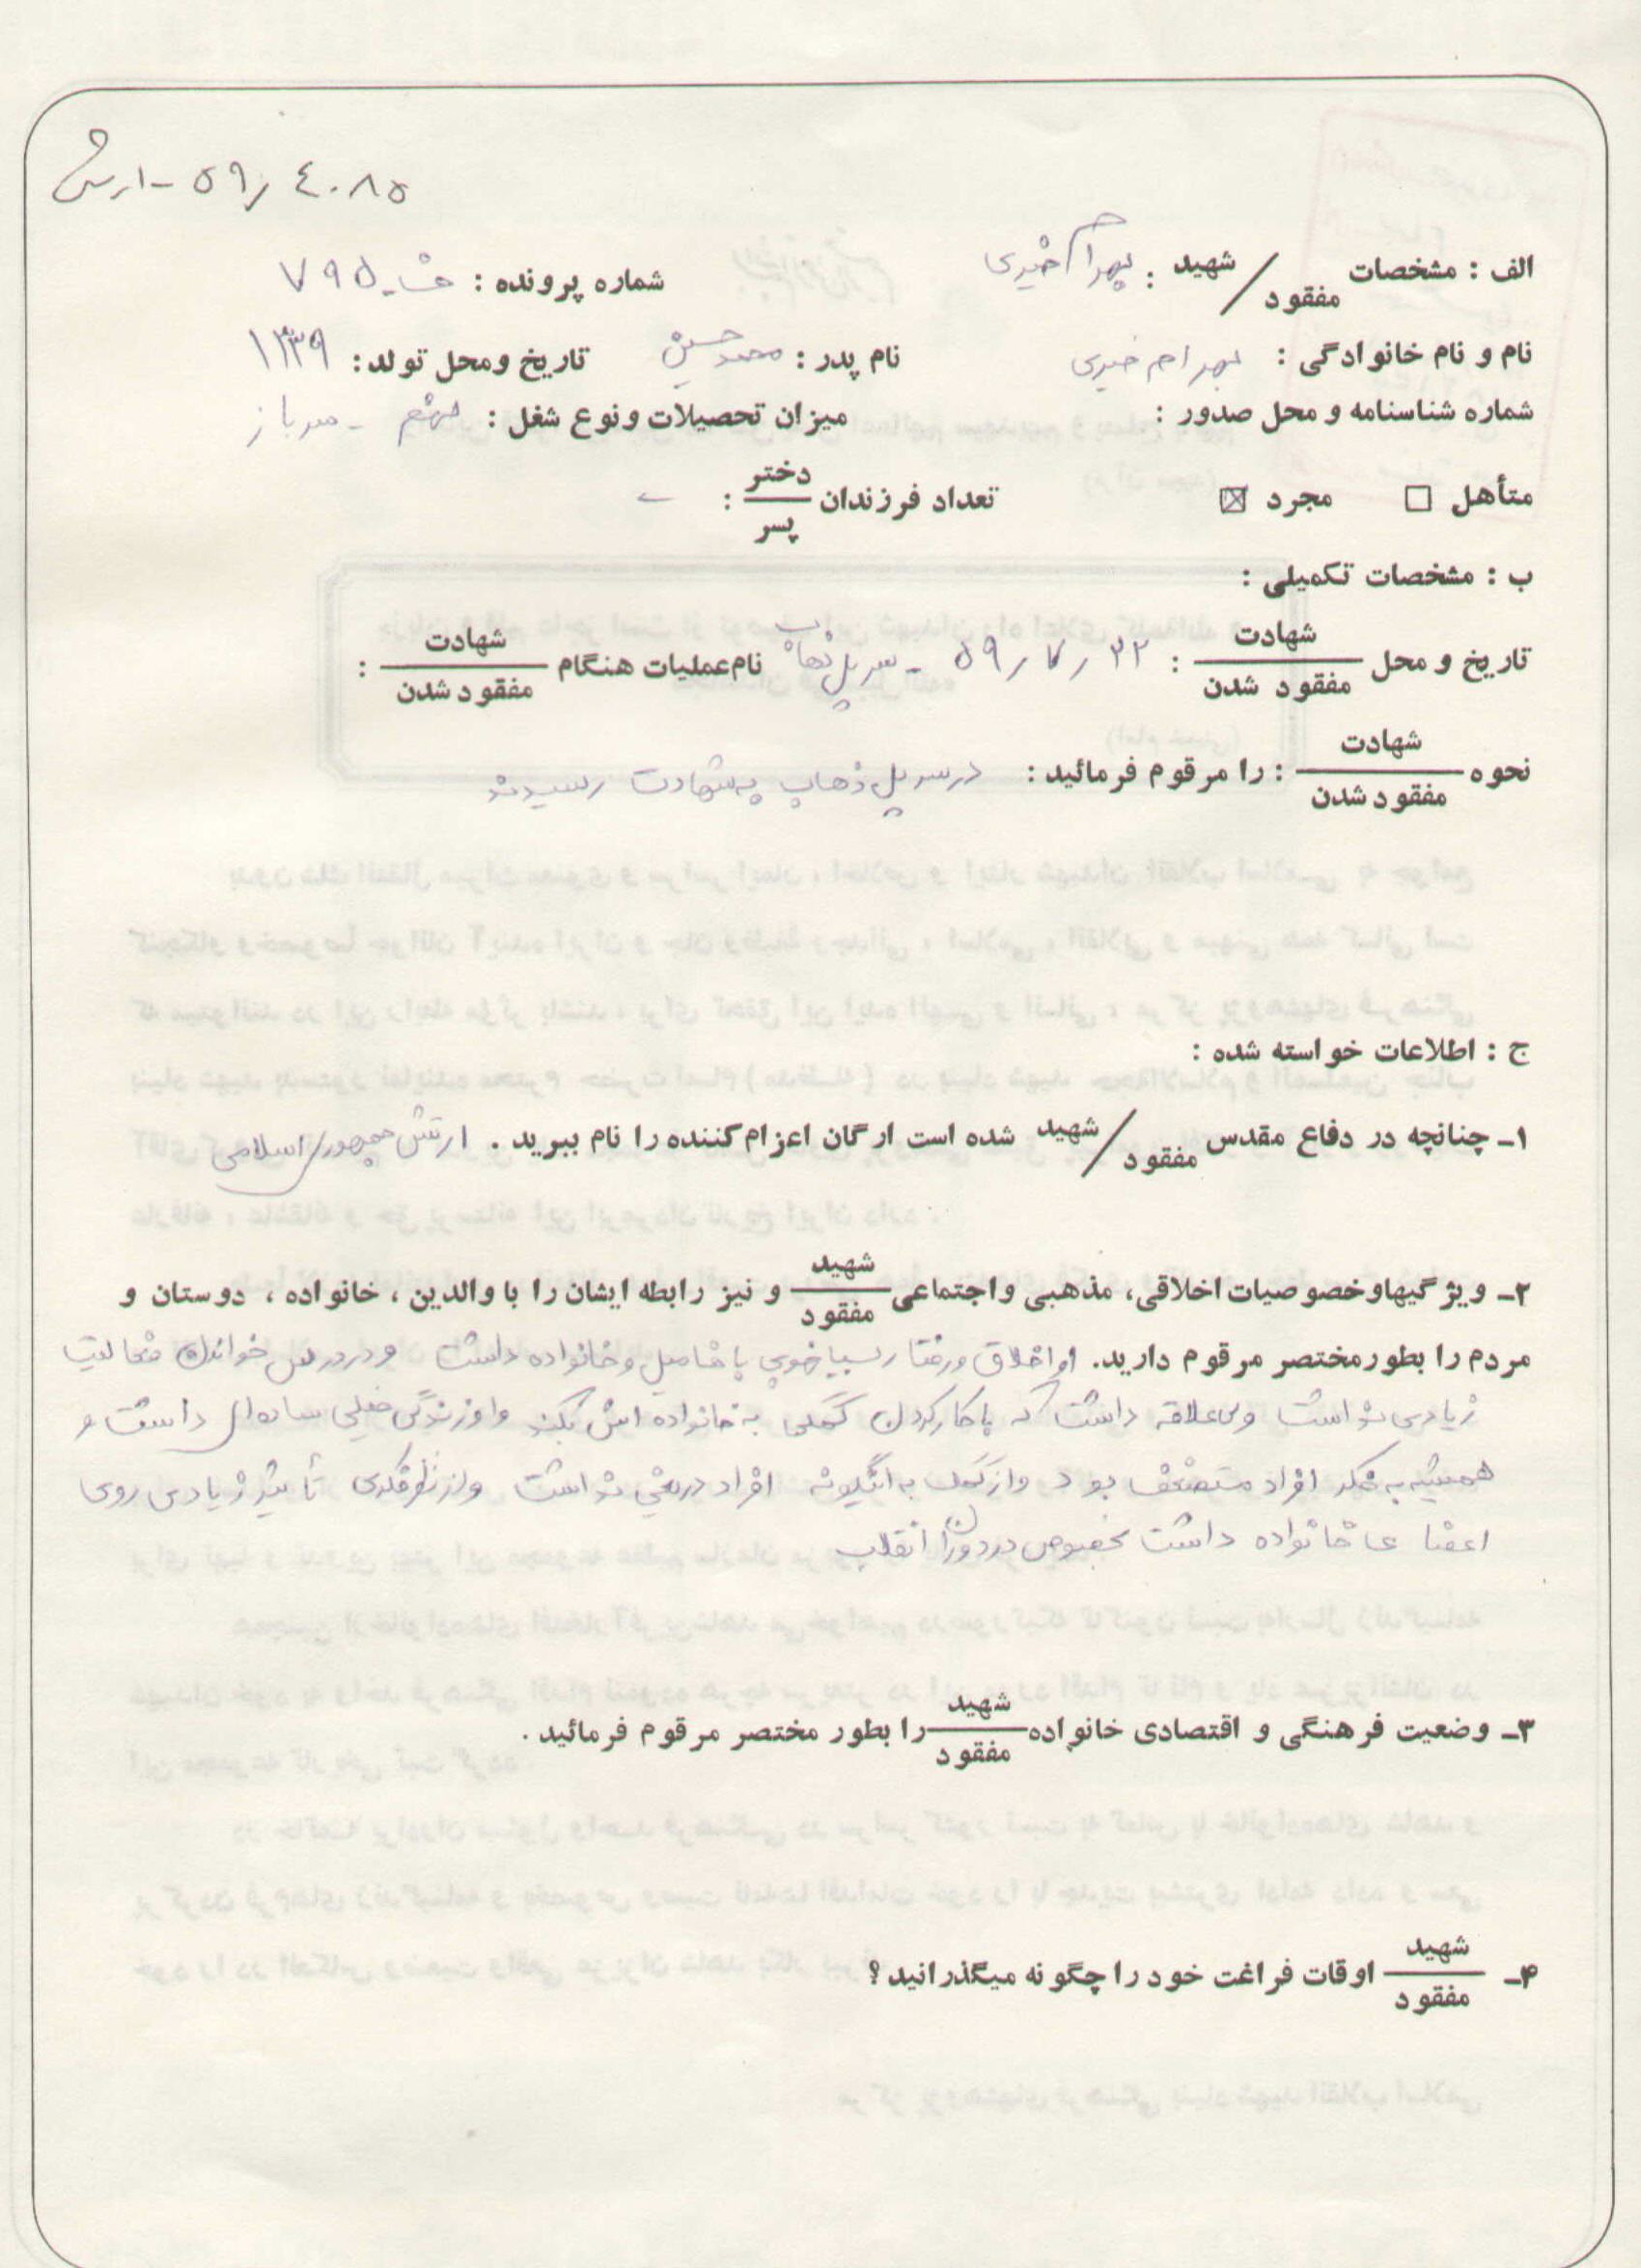 ۵۹/۴۰۸۵ - ارتش
الف : مشخصات شهید / مفقود : بهرام خیری شماره پرونده : ۷۹۵
نام و نام خانوادگی : بهرام خیری نام پدر : محمدحسین تاریخ ومحل تولد : ۱۳۳۹
شماره شناسنامه و محل صدور : میزان تحصیلات ونوع شغل : - سرباز
متأهل ☐ مجرد ☒ تعداد فرزندان دختر / پسر : -
ب : مشخصات تکمیلی :
تاریخ و محل شهادت / مفقود شدن : ۲۲ / ۷ / ۵۹ - سرپل ذهاب نام عملیات هنگام شهادت / مفقود شدن :
نحوه شهادت / مفقود شدن : را مرقوم فرمائید : در سرپل ذهاب به شهادت رسیدند
ج : اطلاعات خواسته شده :
۱- چنانچه در دفاع مقدس شهید / مفقود شده است ارگان اعزام کننده را نام ببرید . ارتش جمهوری اسلامی
۲- ویژگیهاوخصوصیات اخلاقی، مذهبی واجتماعی شهید / مفقود و نیز رابطه ایشان را با والدین ، خانواده ، دوستان و
مردم را بطورمختصر مرقوم دارید. او اخلاق ورفتار بسیار خوبی با فامیل و خانواده داشت و در درس خواندن فعالیت
زیادی نداشت ولی علاقه داشت که با کار کردن کمکی به خانواده اش بکند و او زندگی خیلی ساده ای داشت و
همیشه به فکر افراد مستضعف بود و از کمک به اینگونه افراد دریغی نداشت و از نظر فکری تأثیر زیادی روی
اعضاء خانواده داشت بخصوص در دوران انقلاب
۳- وضعیت فرهنگی و اقتصادی خانواده شهید / مفقود را بطور مختصر مرقوم فرمائید .
۴- شهید / مفقود اوقات فراغت خود را چگونه میگذرانید ؟